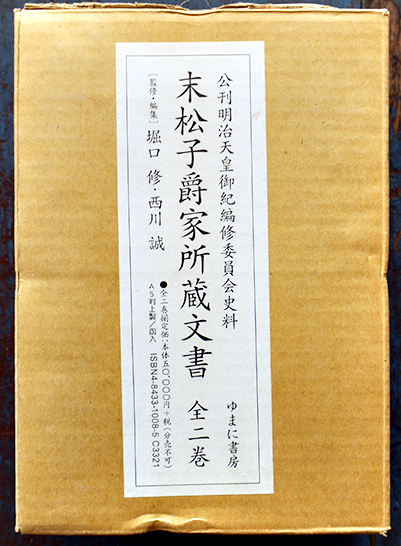 公刊明治天皇御紀編修委員会史料
ゆまに書房
末松子爵家所蔵文書 全二巻
[監修・編集] 堀口 修・西川 誠
●全二巻揃定価:本体五〇,〇〇〇円+税(分売不可)
A5判上製/函入 ISBN4-8433-1008-5 C3321